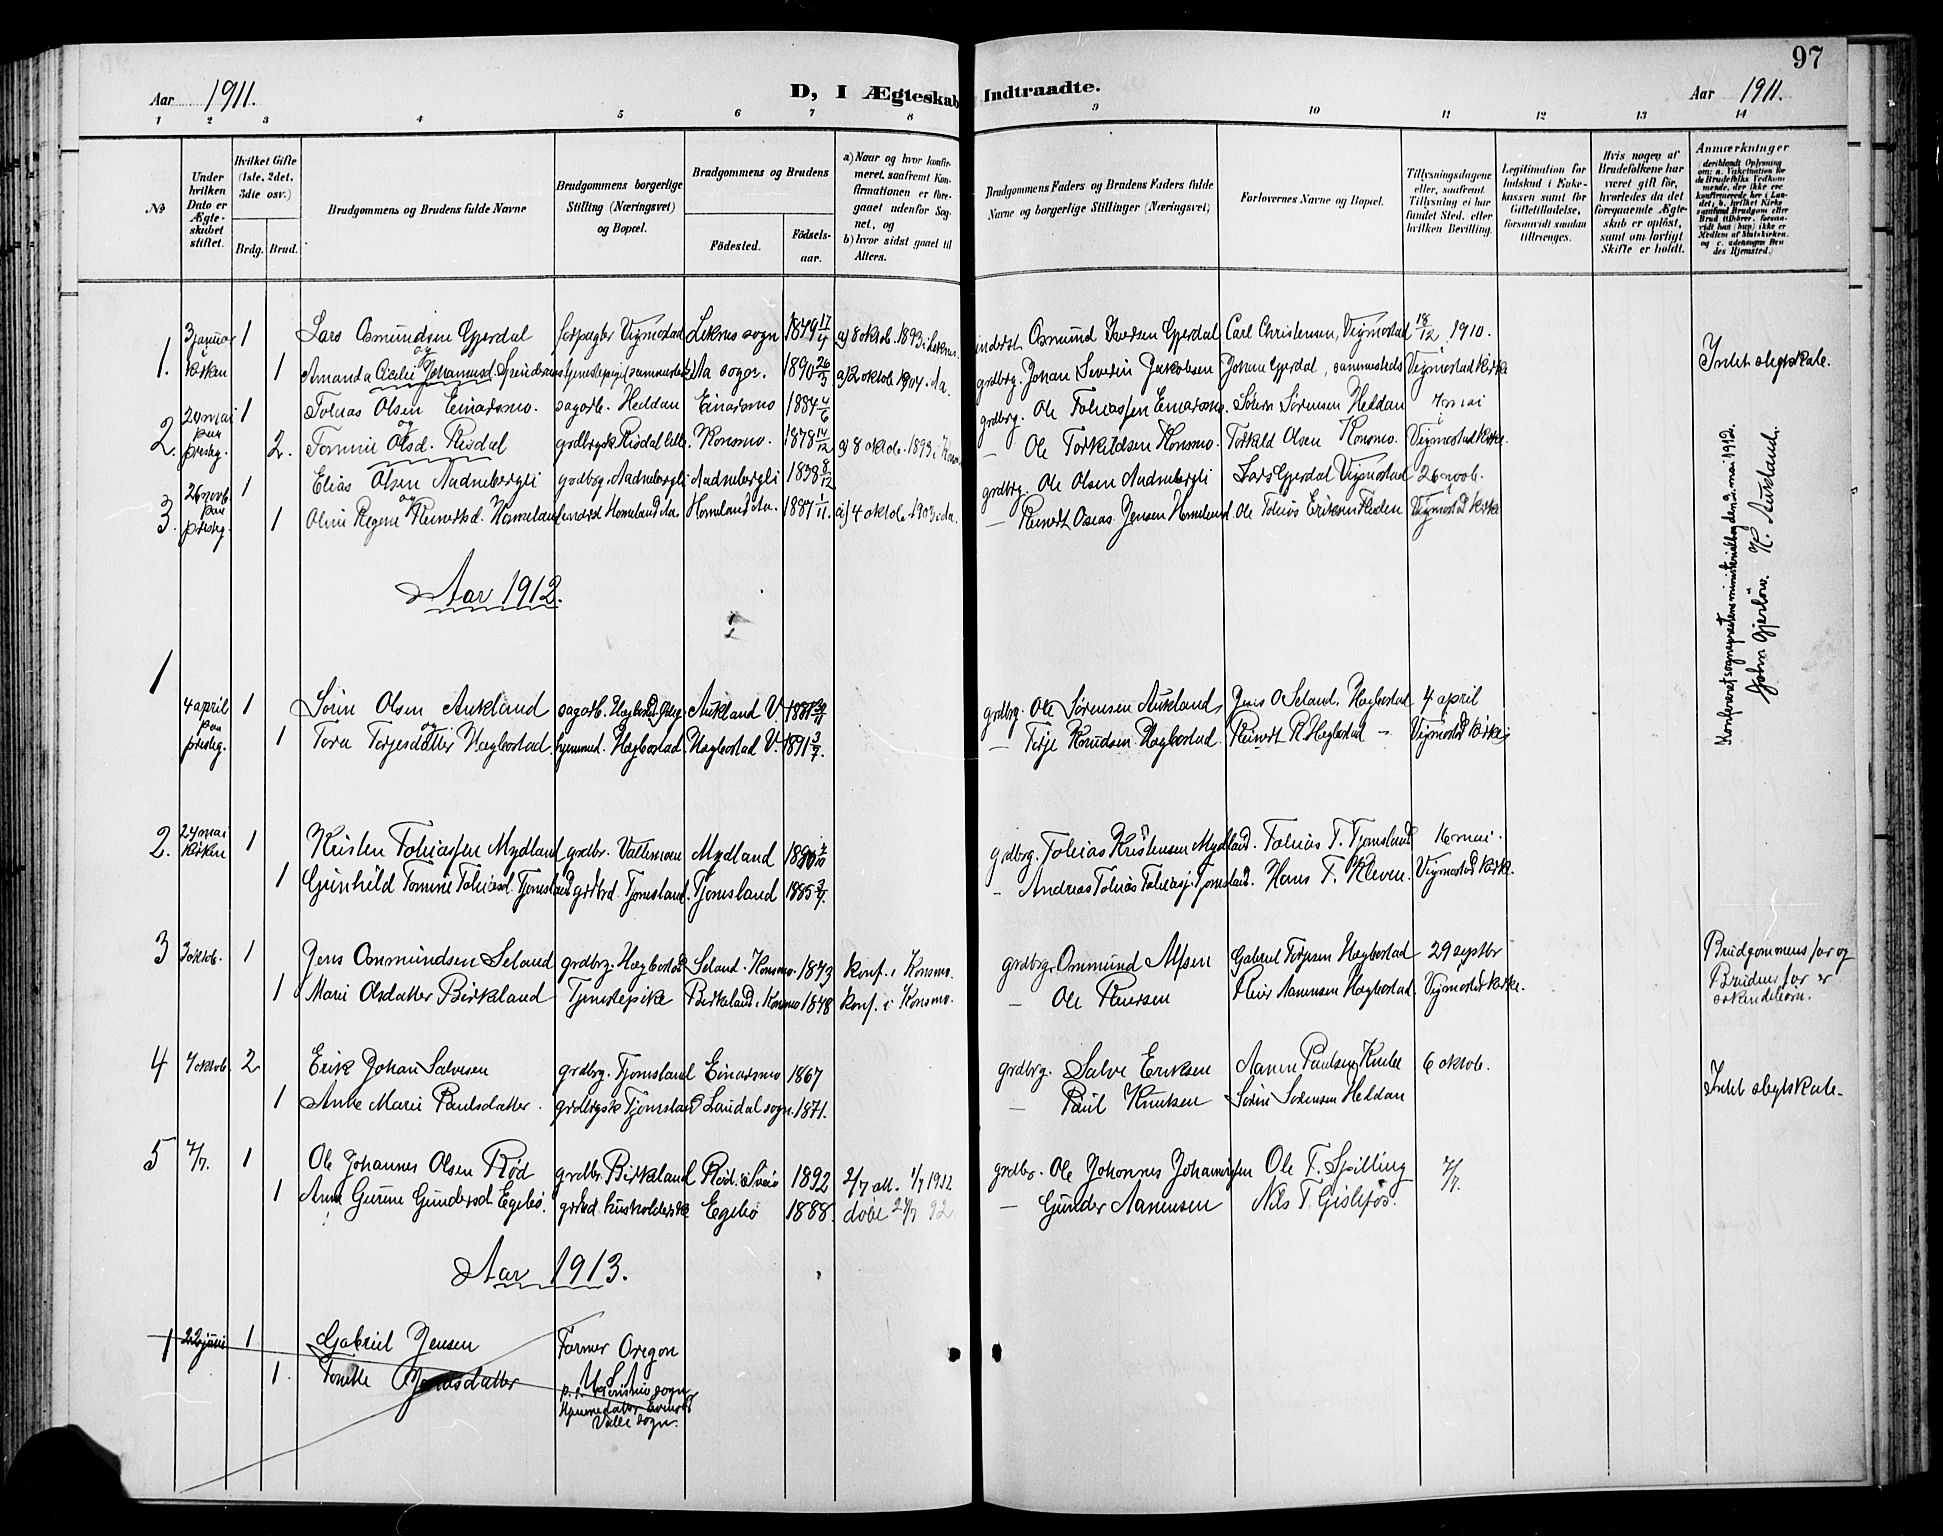 97
Aar 1911.
D, I Ægteskab Indtraadte.
Aar 1911.
1 2 3 4 5 6 7 8 9 10 11 12 13 14
No
Under hvilken Dato er Ægteskabet stiftet.
Hvilket Gifte (1ste, 2det, 3die osv.)
Brdg. Brud.
Brudgommens og Brudens fulde Navne
Brudgommens borgerlige Stilling (Næringsvei) og Bopæl.
Brudgommens og Brudens
Fødested.
Fødselsaar.
a) Naar og hvor konfirmeret, saafremt Konfirmationen er foregaaet udenfor Sognet, og
b) hvor sidst gaaet til Alters.
Brudgommens Faders og Brudens Faders fulde Navne og borgerlige Stillinger (Næringsvei)
Forlovernes Navne og Bopæl.
Tillysningsdagene eller, saafremt Tillysning ei har fundet Sted, efter hvilken Bevilling.
Legitimation for Indskud i Enkekassen samt for Giftetilladelse, forsaavidt saadan tiltrænges.
Hvis nogen af Brudefolkene har været gift før, hvorledes da det foregaaende Ægteskab er opløst, samt om lovligt Skifte er holdt.
Anmærkninger
1. 3 januar i kirken 1 Lars Osmundsen Gjerdal forpagter Vigmostad Leknes sogn 1879 17/4 a) 8 oktob. 1893 i Leknes. inderst Osmund Iversen Gjerdal Carl Christensen, Vigmostad 18/12 1910.
og
1 Amanda Cecilie Johannesd. tjenestepige (sammesteds) Aa sogn. 1890 26/3 a) 2 oktob. 1904 Aa. grdbrg. Johan Severin Jakobsen Johan Gjerdal, sammesteds Vigmostad Kirke Intet slegtskab.
2. 20 mai paa prestg. 1 Tobias Olsen Einarsmo. sagarb. Heddan Einarsmo 1884 4/6 grdbrg. Ole Tobiassen Einarsmo. Sören Sörensen Heddan 7 mai
og
2. Tomine Olsd. Risdal grdbrgsk. Risdal Konsmo. 1878 14/12 a) 8 oktob. 1893 i Konsmo — Ole Torkildsen Konsmo. Torkild Olsen Konsmo. Vigmostad Kirke.
3. 26 novb. paa prestg. 1 Elias Olsen Audnebergli grdbrg. Audnebergli Audnebergli 1838 8/12 grdbrg. Ole Olsen Audnebergli Lars Gjerdal Vigmostad 26 novb.
og
1 Oline Regine Reinertsd. Homeland inderst Homeland Aa. Homeland Aa. 1887 1/11. a) 4 oktob. 1903 i Aa. — Reinert Oseas Jensen Homeland Ole Tobias Eriksen Vigmostad Kirke
Konfereret sogneprestens ministerialbog den mai 1912.
John Gjerlöw. K. Aukland.
Aar 1912.
1 4 april paa prestg. 1 Sörin Olsen Aukland sagarb. Hægbostad Aukland V. 1881 grdbrg. Ole Sörensen Aukland, Jens O Seland, Hægbostad 4 april
og
1 Tora Terjesdatter Hægbostad hjemmed. Hægbostad. Hægbostad V. 1891 3/7. — Terje Knudsen Hægbostad. Reinert R Hægbostad – Vigmostad Kirke
2. 24 mai kirken 1 Kristen Tobiassen Mydland grdbr. Mydland 1890 grdbrg. Tobias Kristensen Mydland. Tobias T. Tjomsland 16 mai.
1 Gunhild Tomine Tobiasd. Tjomsland grdbrd. Tjomsland. Tjomsland 1885 — Andreas Tobias Tobiass. Tjomsland. Hans T. Kleven. Vigmostad Kirke.
3 3 oktob. 1 Jens Osmundsen Seland grdbrg. Hægbostad Seland. Konsmo. 1873 konf. i Konsmo. grdbrg. Osmund Alfsen Gabriel Terjesen Hægbostad 29 septbr Brudgommens far og
1 Marie Olsdatter Birkland Tjenestepike Birkland i Konsmo 1878 konf. i Konsmo. — Ole Reiersen Reier Aanensen Hægbostad. Vigmostad Kirke. Brudens far er
søskendebörn.
4 7 oktob. 2 Erik Johan Salvesen grdbrg. Tjomsland Einarsmo 1867 grdbrg. Salve Eriksen Aanen Paulsen Kube 6 oktob.
1 Anne Marie Paulsdatter. grdbrgsk. Tjomsland Laudal sogn. 1871. — Paul Knutsen Sörin Sörensen Heddan Intet slegtskab.
5 7/7. 1 Ole Johannes Olsen Röd grdbr. Birkland Röd i 1892 2/7 alt. 1/7 1912 grdbr. Ole Johannes Johannessen Ole T. Spilling 7/7.
1 Anne Gurine Gundersd Egebö. grbrd husholderske Egebö 1888. döbt 92 — Gunder Aanensen Nils T. Gislefös.
Aar 1913.
1 22 juni 1 Gabriel Jensen Farmer Oregon
1. Tonette datter p. t.
Hjemmedatter
Valle sogn.